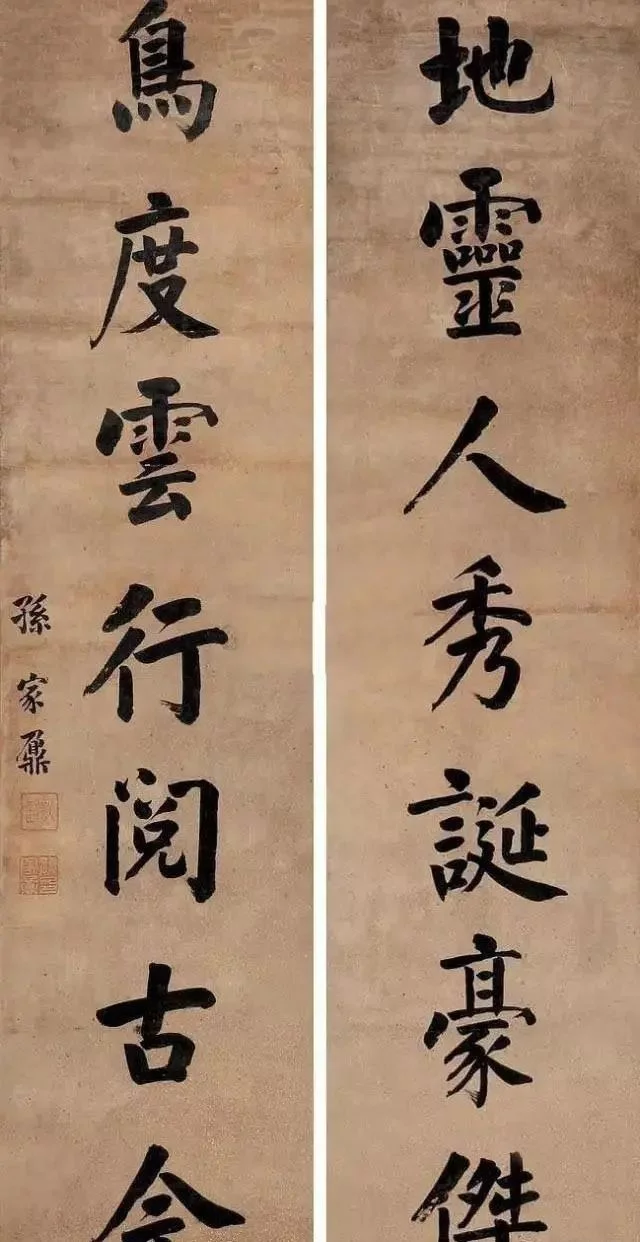 地靈人秀誕豪傑
鳥度雲行閱古今
孫家鼐